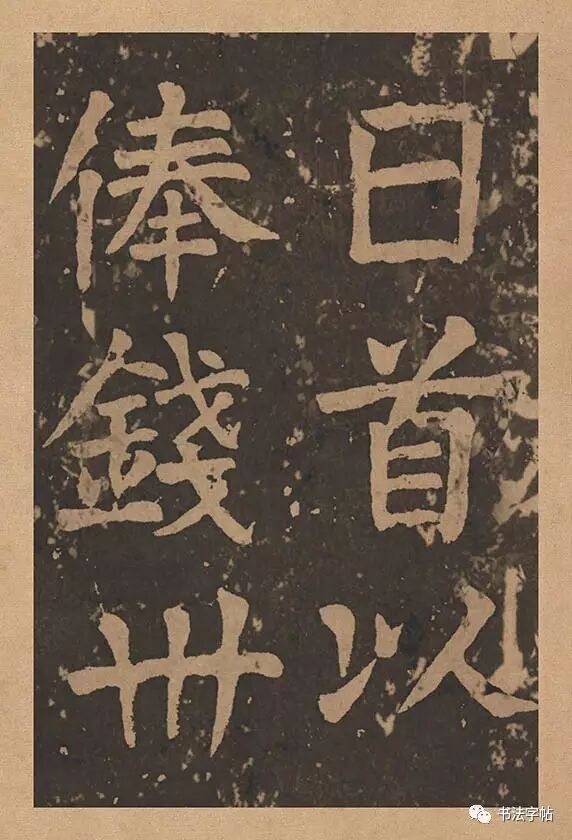 日首以
俸錢卅
书法字帖